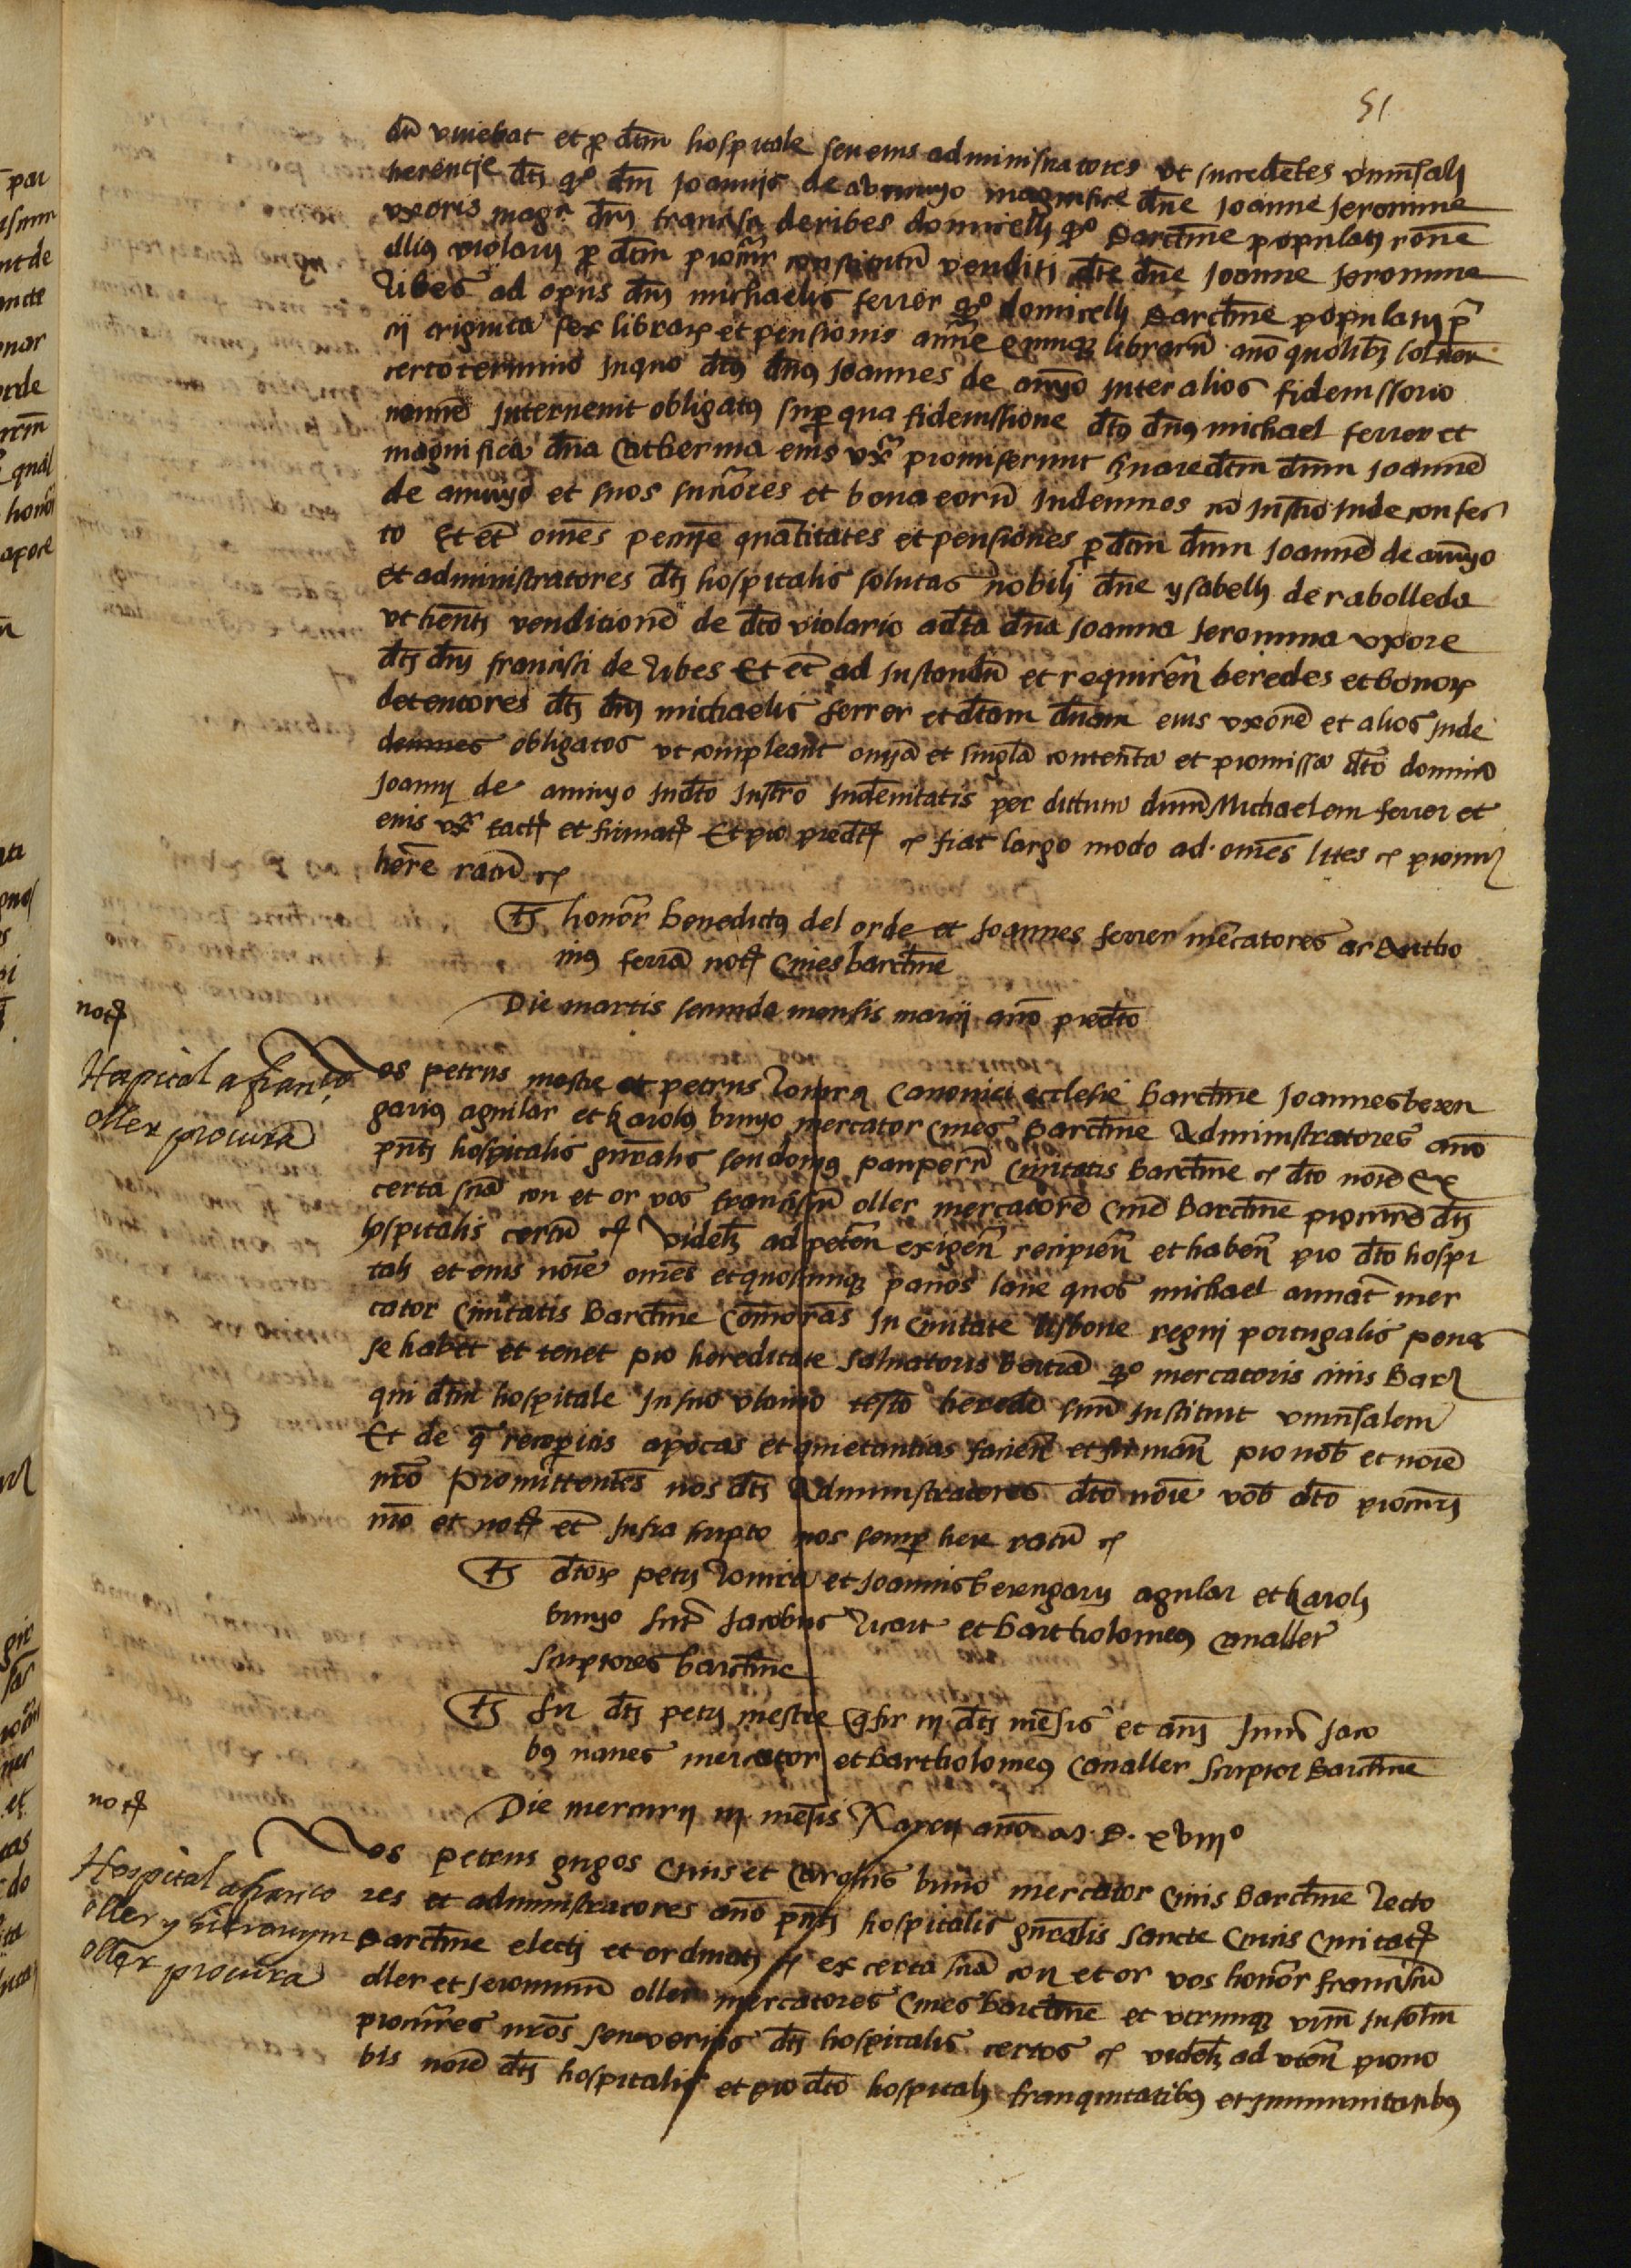 51
dū vivebat et ꝑ dc̄m hospitale seu eius administratores ut succedētes univrsalj
herencie dc̄j qo dn̄i Joannis de avinyo magnifice dn̄e Joanne Jeronime
uxoris magci dn̄j francisci de ribes domicellj qo Barcn̄e populatj rōne
illius violarij ꝑ dc̄m venditi dc̄e dn̄e Joanne Jeronime
Ribes ad opus dn̄j michaelis ferrer qo domicellj Barcn̄e populatj
cij triginta sex librarꝝ et pensionis annue quinqꝫ librarū anō quolibꝫ
certo termino Inquo dc̄us dn̄us Joannes de avinyo inter alios fideiussorio
nomine Intervenit obligatus supqua fideiussione dc̄us dn̄us michael ferrer et
magnifica dn̄a Catherina eius uxr promiserunt dc̄m dn̄m Joannē
de avinyo et suos successores et bona eorū Indemnes cū instrō Inde confec
to Et ec̄ omēs pecunie quātitates et pensiones ꝑ dc̄m dn̄m Joannē de avinyo
et administratores dc̄j hospitalis solutas nobilj dn̄e ysabellj de rabolleda
ut hentj venditionē de dc̄o violario a dc̄a dn̄a Joanna Jeronima uxore
dc̄j dn̄j francisci de Ribes Et ec̄ ad Instandū et requirēn heredes et bonorꝝ
detentores dc̄j dn̄j michaelis ferrer et dc̄am dn̄am eius uxorē et alios Inde
obligatos ut compleant omīa et singlā contenta et promissa dc̄o domino
Joannj de avinyo Indc̄o Instrō Indemnitatis per dictum dn̄m Michaelem ferrer et
eius uxr fact et firmat Et pro predc̄ ꝛc fiat largo modo ad omēs lites ꝛc promitt
here ratū ꝛc
Ts honor Benedictus del orde et Joannes ferrer mercatores ac Antho
nius not Cives barcn̄e
Die martis secunda mensis marcij anō predc̄o
not
Hospital a franco
oller procura
Nos petrus mestre et petrus Rovira Canonici ecclesie barcn̄e Joannes beren
garius agullar et karolus bunyo mercator Cives Barcn̄e Administratores anō
pn̄tj hospitalis gn̄ralis seu domus pauperū Civitatis Barcn̄e ꝛc dc̄o noīe Ex
certa sn̄a con et or vos franciscū oller mercatorē Civē Barcn̄e procurē dc̄j
hospitalis certū ꝛc videlꝫ ad petēn exigēn recipiēn et habēn pro dc̄o hospi
talj et eius noīe omēs et quoscunqꝫ panos lane quos michael mer
cator Civitatis Barcn̄e Comorās In Civitate Lisbone regnj portugalis penes
se habet et tenet pro hereditate Salvatoris qo mercatoris civis Barcn
qui dc̄m hospitale In suo ultimo testō heredē suū Instituit univrsalem
Et de q receptis apocas et quietantias faciēn et firmān pro nob et noīe
nrō Promittentēs nos dc̄j Administratores dc̄o noīe vob dc̄o procurj
nrō et not ec̄ Infra scripto nos semp here ratū ꝛc
Ts dc̄orꝝ petrj Rovira et Joannis berengarij agullar et karolj
bunyo sunt Jacobus Ricart et bartholomeus Cavaller
Scriptores barcn̄e
Ts fir dc̄j petrj mestre q fir iij dc̄j mēsis et anj sunt Jaco
bus mercator et Bartholomeus Cavaller Scriptor Barcn̄e
Die mercurij iij mēsis Marcij anō M D xviiijo
not
Hospital a franco
oller y hieronym
oller procura
Nos petrus gugos Civis et Carolus bunio mercator Civis Barcn̄e Recto
res et administratores anō pn̄tj hospitalis gn̄ralis sancte Crucis Civitat
Barcn̄e electj et ordinatj ꝛc ex certa sn̄a con et or vos honor franciscū
oller et Jeronimū oller mercatores Cives barcn̄e et utrunqꝫ vrm Insolm
procurres nrōs seu verius dc̄j hospitalis certos ꝛc videlꝫ ad utēn prono
bis noīe dc̄j hospitalis et pro dc̄o hospitalj franquitatibus et Immunitatibus